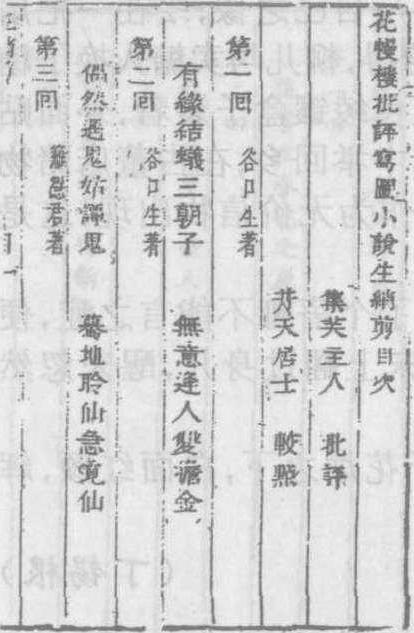 花幔樓批評寫圖小說生綃剪目次
集芙主人 批評
井天居士 較點
第一回 谷口生著
有緣結蟻三朝子 無意逢人雙擔金
第二回 谷口生著
偶然遇鬼姑譚鬼 驀地聆仙急覓仙
第三回 籬隱君著